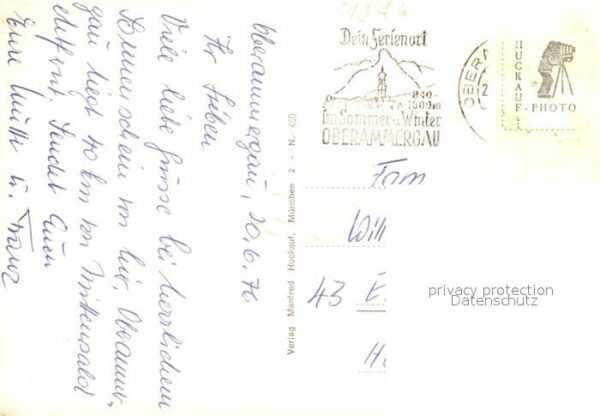 Oberammergau, 20.6.76
Ihr Lieben
Viele liebe Grüsse bei herrlichem
Sonnenschein von hier, Oberammer-
gau liegt 40 km von Mittenwald
entfernt. Sendet Euch
Eure Mutti u. Franz
Verlag Manfred Huckauf, München 2 - N. 459
1976
Dein Ferienort
840-
1800m
im Sommer u. Winter
OBERAMMERGAU
OBERA
HUCKAUF-PHOTO
Fam
Will
43 E
privacy protection
Datenschutz